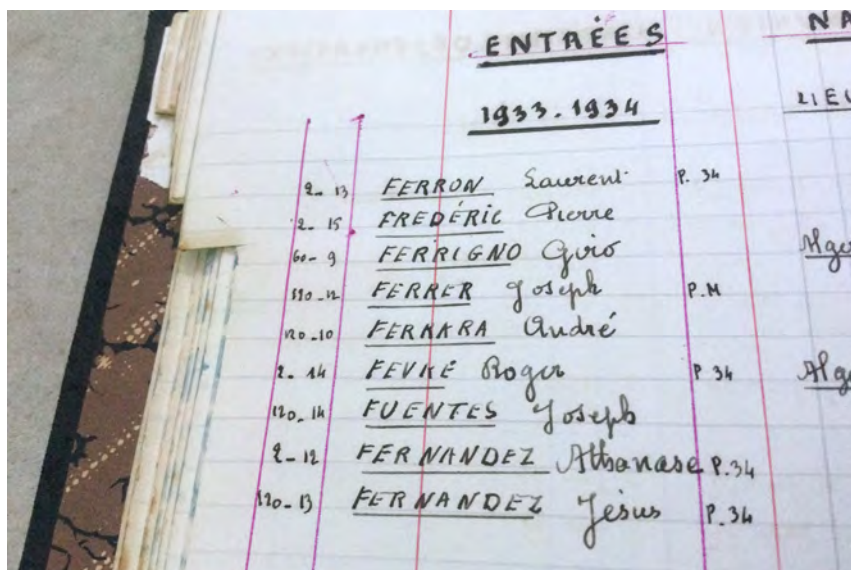 ENTRÉES NA
1933.1934 LIEU
2-13 FERRON Laurent P.34
2-15 FREDÉRIC Pierre
60-9 FERRIGNO Giro Alger
120-12 FERRER Joseph P.M
120-10 FERRARA André
2-14 FEVRE Roger P.34 Alge
120-14 FUENTES Joseph
2-12 FERNANDEZ Athanase P.34
120-13 FERNANDEZ Jésus P.34